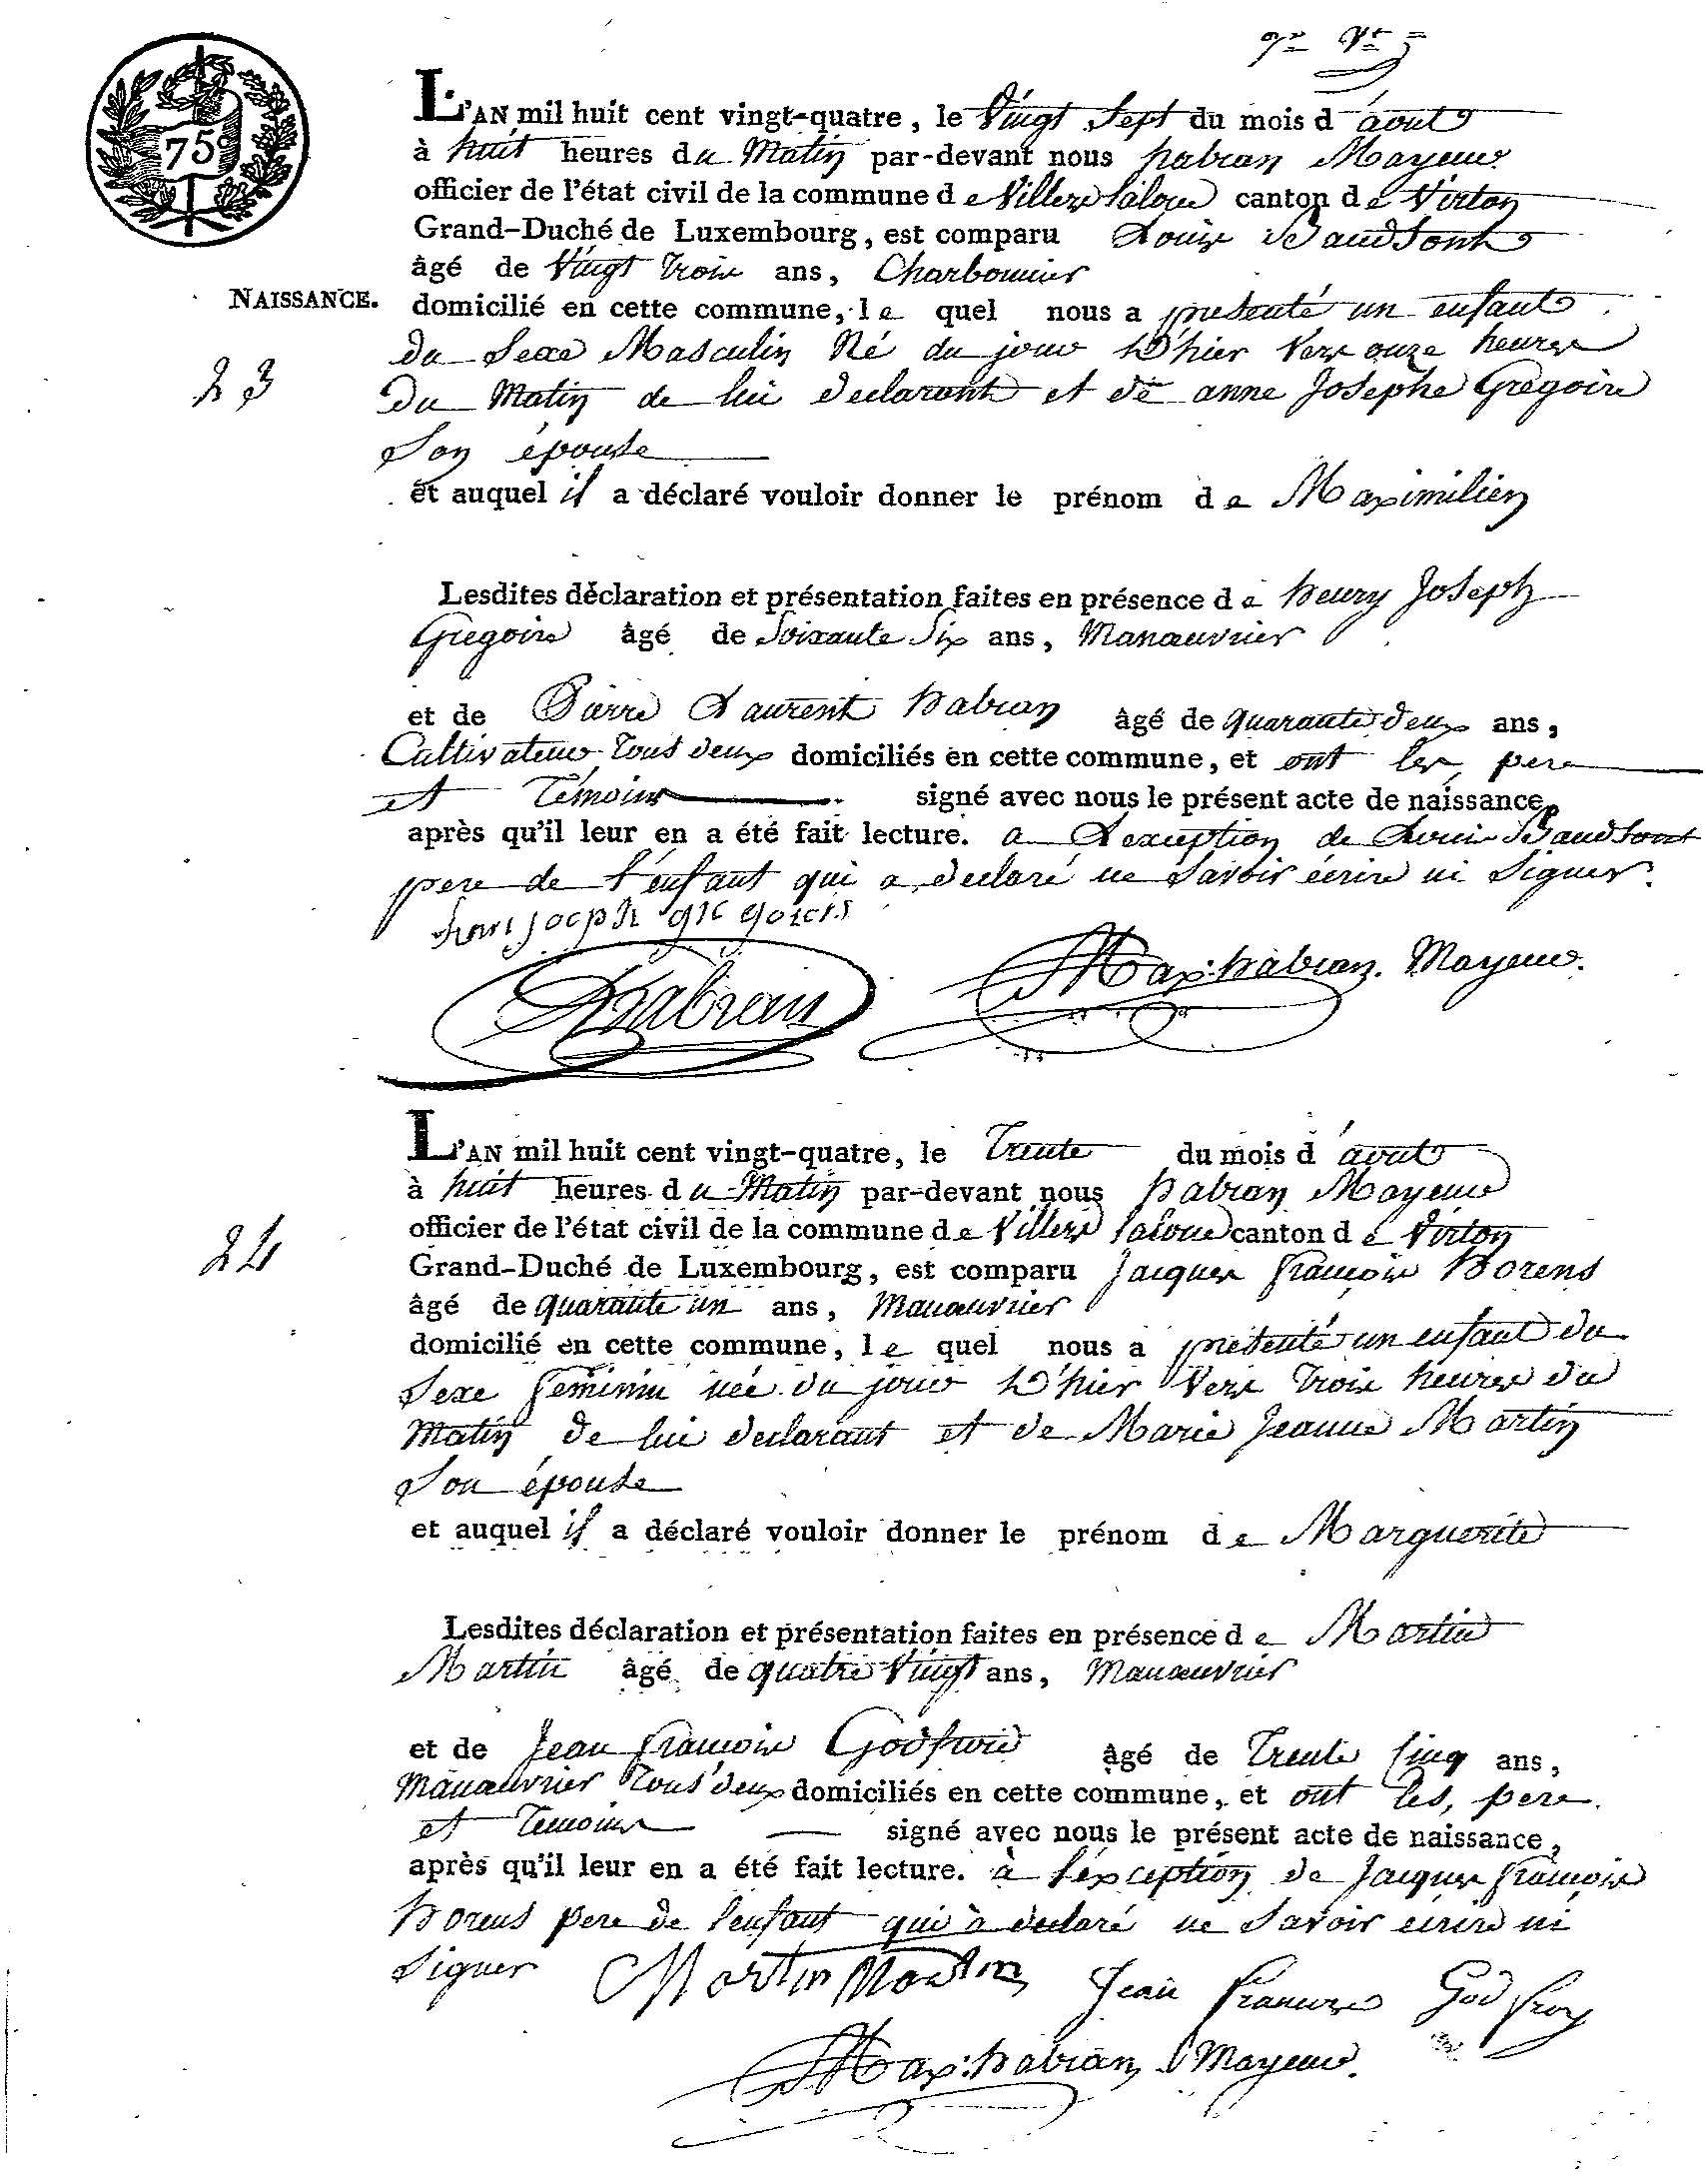 75c
L'AN mil huit cent vingt-quatre, le Vingt Sept du mois d'août
à huit heures du Matin par-devant nous habran Mayeur
officier de l'état civil de la commune de Villers laloue canton de Virton
Grand-Duché de Luxembourg, est comparu Louis Baudsont
âgé de Vingt Trois ans, Charbonnier
NAISSANCE.
domicilié en cette commune, le quel nous a presenté un enfant
23
du Sexe Masculin Né du jour D'hier Vers onze heures
Du Matin de lui declarant et de anne Josephe Gregoire
Son épouse
et auquel il a déclaré vouloir donner le prénom de Maximilien
Lesdites déclaration et présentation faites en présence de henry Joseph
Gregoire âgé de Soixante Six ans, Manœuvrier
et de Pierre Laurent habran âgé de quarante deux ans,
Cultivateur Tous deux domiciliés en cette commune, et ont les pere
et Témoins signé avec nous le présent acte de naissance,
après qu'il leur en a été fait lecture. a Lexception de Louis Baudsont
pere de l'enfant qui a declaré ne Savoir écrire ni Signer.
henri joseph gregoire
habran Max: habran. Mayeur.
L'AN mil huit cent vingt-quatre, le Trente du mois d'août
à huit heures du Matin par-devant nous habran Mayeur
24
officier de l'état civil de la commune de Villers laloue canton de Virton
Grand-Duché de Luxembourg, est comparu Jacques françois horens
âgé de quarante un ans, Manœuvrier
domicilié en cette commune, le quel nous a presenté un enfant du
Sexe feminin née du jour D'hier Vers Trois heures du
Matin de lui declarant et de Marie Jeanne Martin
Son épouse
et auquel il a déclaré vouloir donner le prénom de Marguerite
Lesdites déclaration et présentation faites en présence de Martin
Martin âgé de quatre Vingt ans, Manœuvrier
et de Jean françois Godfroid âgé de Trente Cinq ans,
Manœuvrier Tous deux domiciliés en cette commune, et ont les, pere
et Temoins signé avec nous le présent acte de naissance,
après qu'il leur en a été fait lecture. à l'éxception de Jacques françois
horens pere de l'enfant qui à declaré ne Savoir écrire ni
Signer Martin Martin Jean françois Godfroy
Max: habran Mayeur.